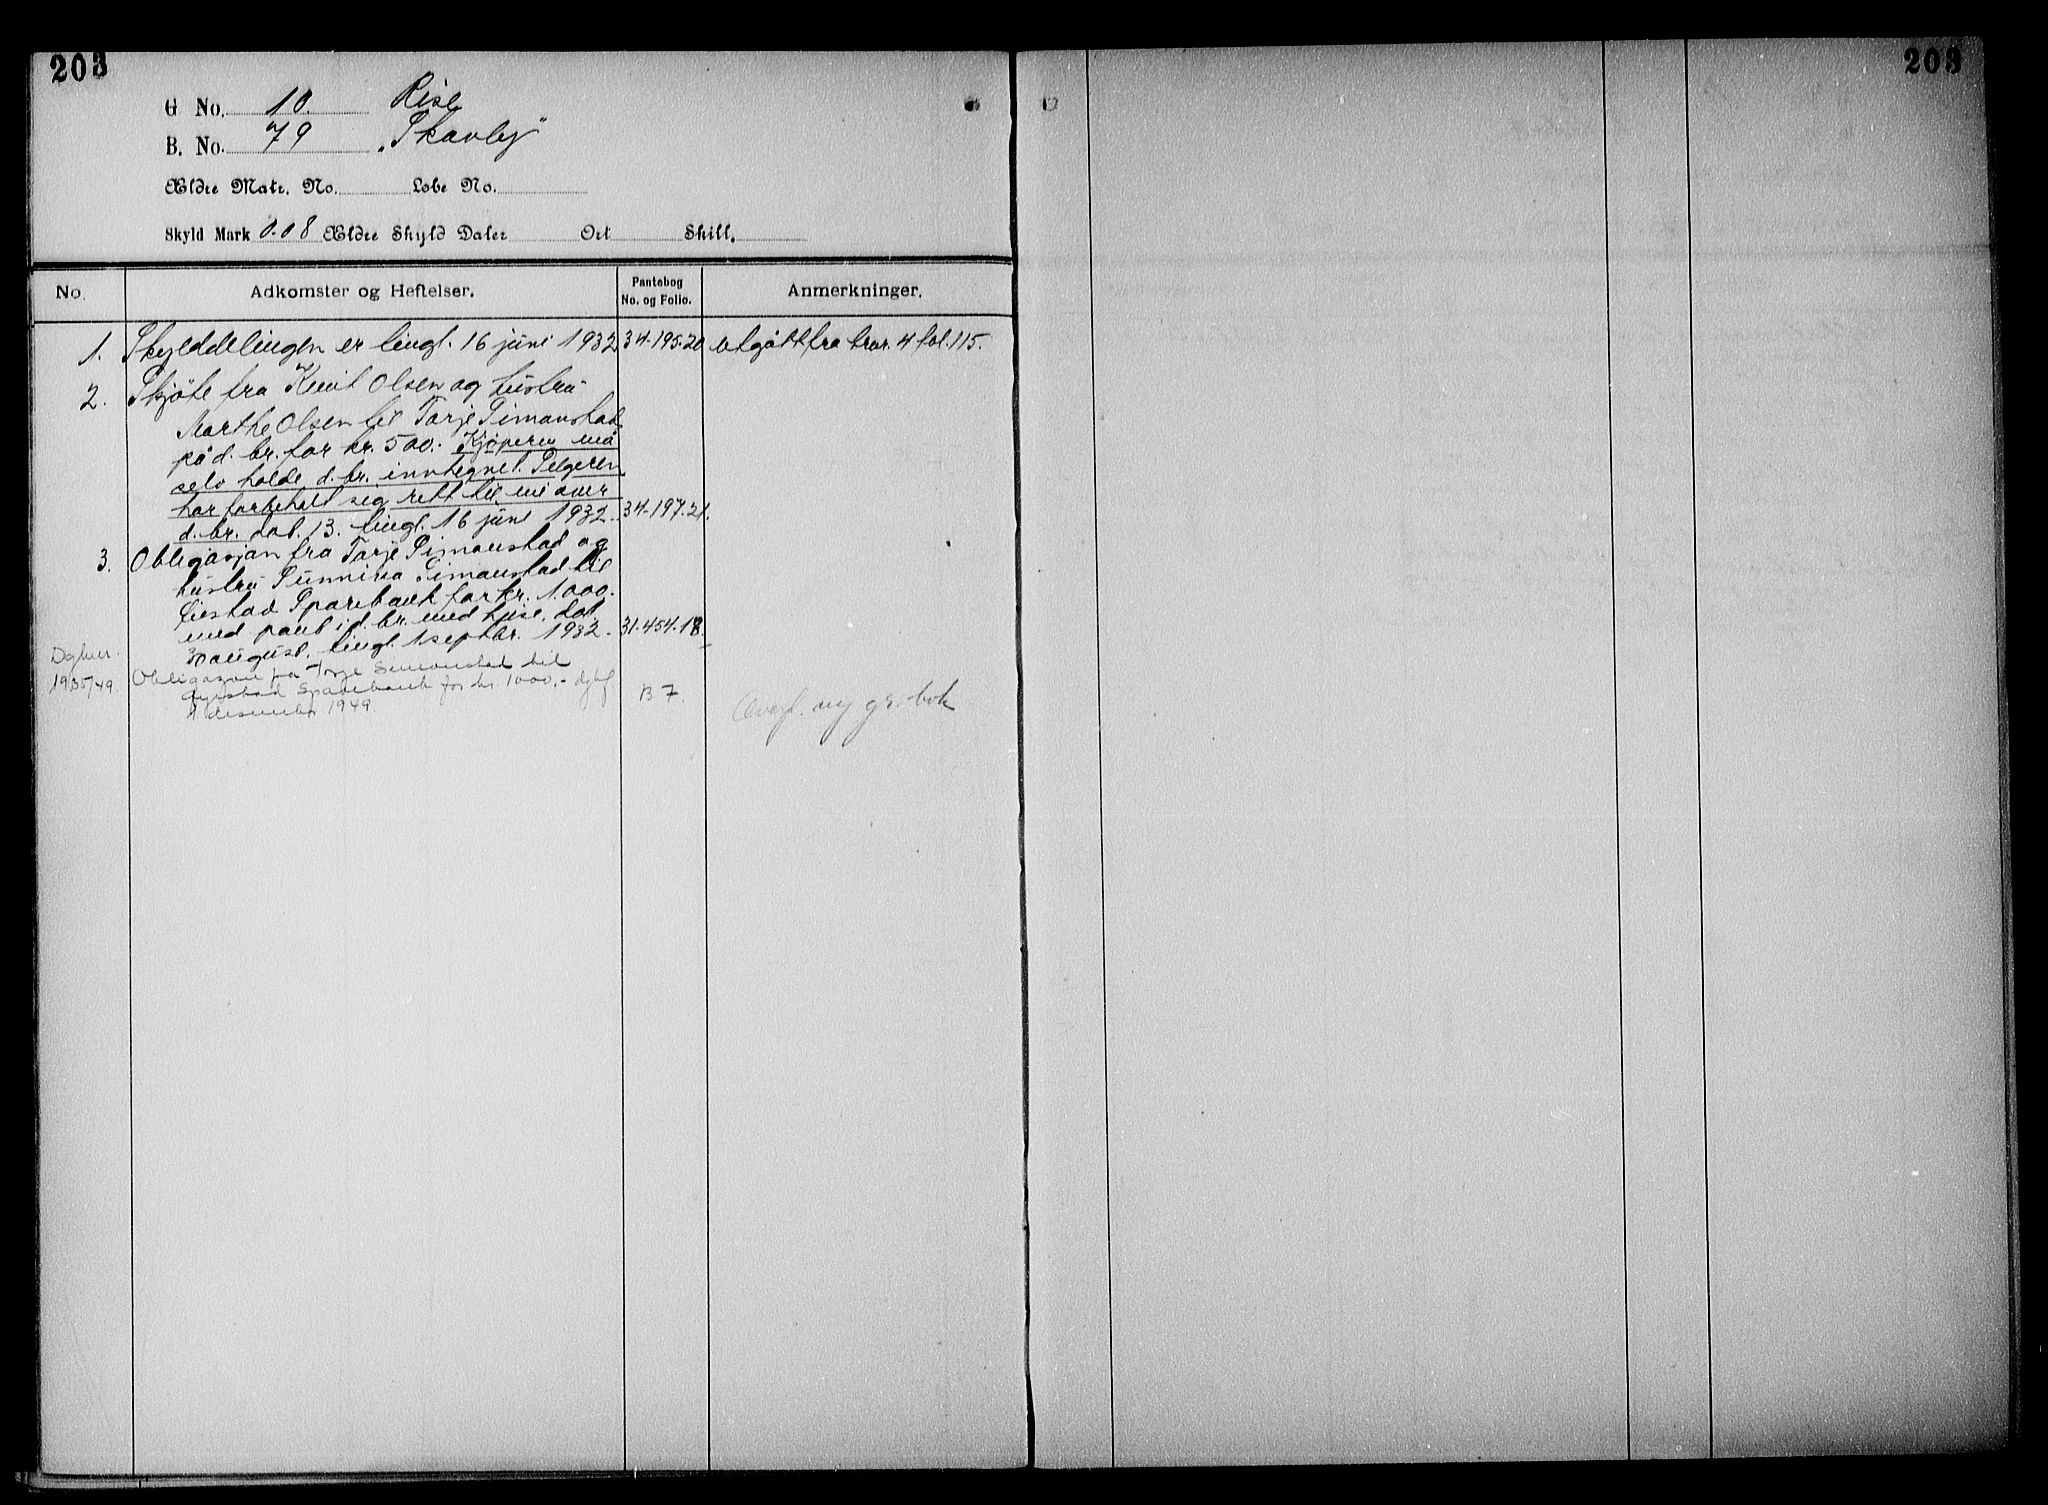 203
203
G No. 10. Rise
B. No. 79 "Skavley"
Ældre Matr. No. Løbe No.
Skyld Mark 0.08 Ældre Skyld Daler Ort Skill.
No. Adkomster og Heftelser. Pantebog No. og Folio. Anmerkninger.
1. Skylddelingen er tingl. 16 juni 1932 34-195-20 utgått fra brnr. 4 fol. 115.
2. Skjøte fra Knut Olsen og hustru
Marthe Olsen til Tarje Simonstad
på d. br. for kr. 500. Kjøperen må
selv holde d. br. innhegnet. Selgeren
har forbeholt seg rett til vei over
d. br. dat. 13. tingl. 16 juni 1932. 34-197-21.
3. Obligasjon fra Tarje Simonstad og
hustru Gunnina Simonstad til
Sparebank for kr. 1.000.
med pant i d. br. med hus. Dat.
30 august, tingl. 1 septbr. 1932. 31-454-18.
Dgbnr.
1935/49. Obligasjon fra Tarje Simonstad til
Sparebank for kr. 1000,- dgbf
desember 1949. B 7.
Overf. ny gr. bok